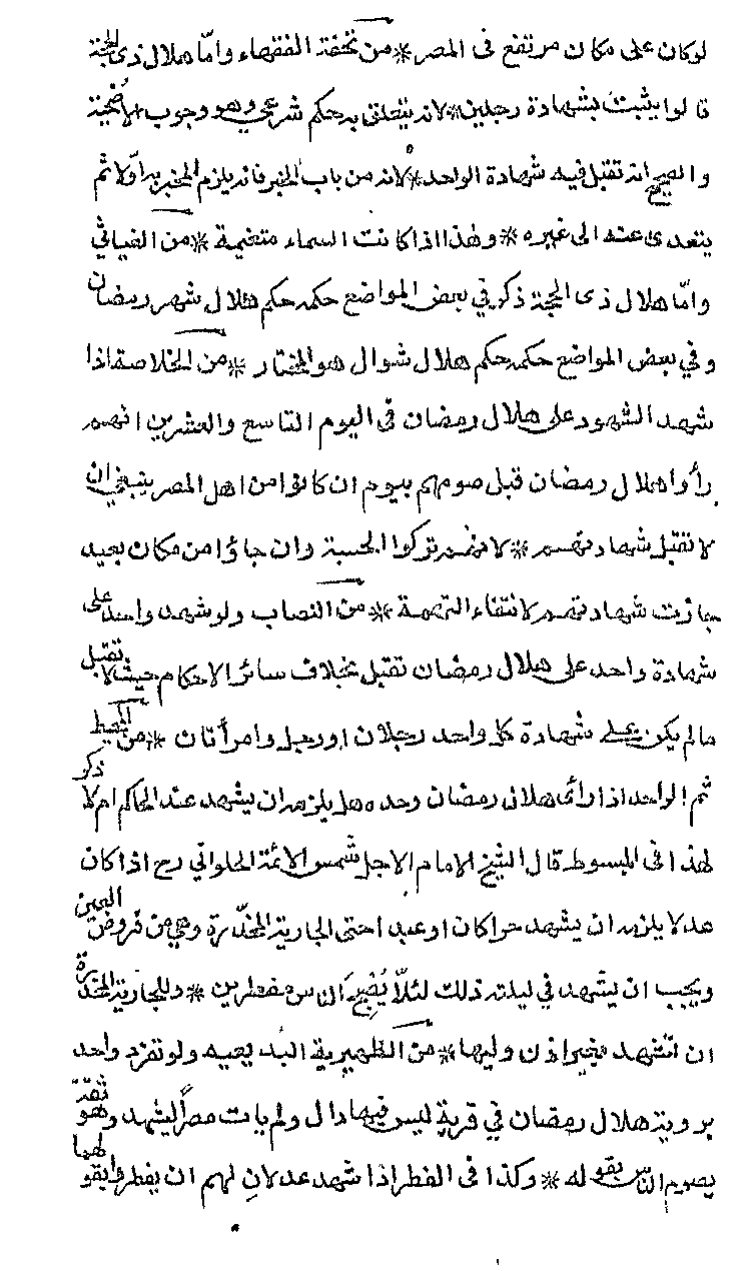 لو كان على مكان مرتفع فى المصر * من تحفة الفقهاء واما هلال ذى الحجة
قالوا يثبت بشهادة رجلين * لانه يتعلق به حكم شرعي وهو وجوب الاضحية
والصحيح انه تقبل فيه شهادة الواحد * لانه من باب الخبر فانه يلزم المخبر به اوّلا ثم
يتعدى عنه الى غيره * وهذا اذا كانت السماء متغيمة * من الغياثي
وامّا هلال ذى الحجة ذكر في بعض المواضع حكمه حكم هلال شهر رمضان
وفي بعض المواضع حكمه حكم هلال شوال هو المختار * من الخلاصة اذا
شهد الشهود على هلال رمضان فى اليوم التاسع والعشرين انهم
رأوا هلال رمضان قبل صومهم بيوم ان كانوا من اهل المصر ينبغي ان
لا تقبل شهادتهم * لانهم تركوا الحسبة وان جاؤا من مكان بعيد
جازت شهادتهم لانتفاء التهمة * من النصاب ولو شهد واحد على
شهادة واحد على هلال رمضان تقبل بخلاف سائر الاحكام حيث لا تقبل
مالم يكن على شهادة كل واحد رجلان او رجل وامرأتان * من المحيط
ثم الواحد اذا رأى هلال رمضان وحده هل يلزمه ان يشهد عند الحاكم ام لا ذكر
لهذا فى المبسوط قال الشيخ الامام الاجل شمس الائمة الحلواني رح اذا كان
عدلا يلزمه ان يشهد حرا كان او عبدا حتى الجارية المخدّرة وهي من فروض العين
ويجب ان يشهد في ليلته ذلك لئلّا يُصْبِحَ الناس مفطرين * وللجارية المخدرة
ان تشهد بغير اذن وليها * من الظهيرية البديعيه ولو تفرد واحد
برویة هلال رمضان في قرية ليس فيها وال ولم يات مصراً ليشهد وهو ثقة
يصوم الناس بقوله * وكذا فى الفطر اذا شهد عدلان لهم ان يفطروا بقولهما